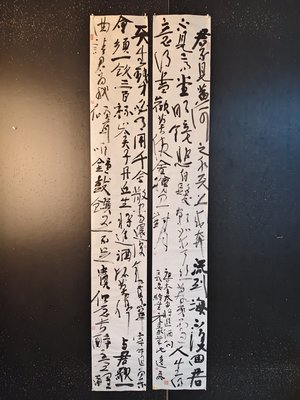 君不見黄河之水天上来奔流到海不復回君
不見高堂明鏡悲白髮朝如青絲暮成雪人生得
意須盡歡莫使金樽空對月
天生我材必有用千金散盡還復来烹羊宰牛且為樂
會須一飲三百杯岑夫子丹丘生將進酒杯莫停與君歌一
曲請君為我傾耳聽鐘鼓饌玉不足貴但願長醉不願醒